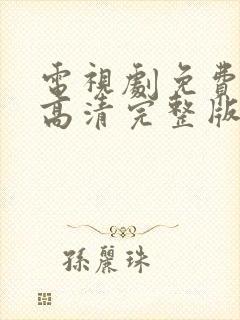 電視劇免費
高清完整版
孫麗珠